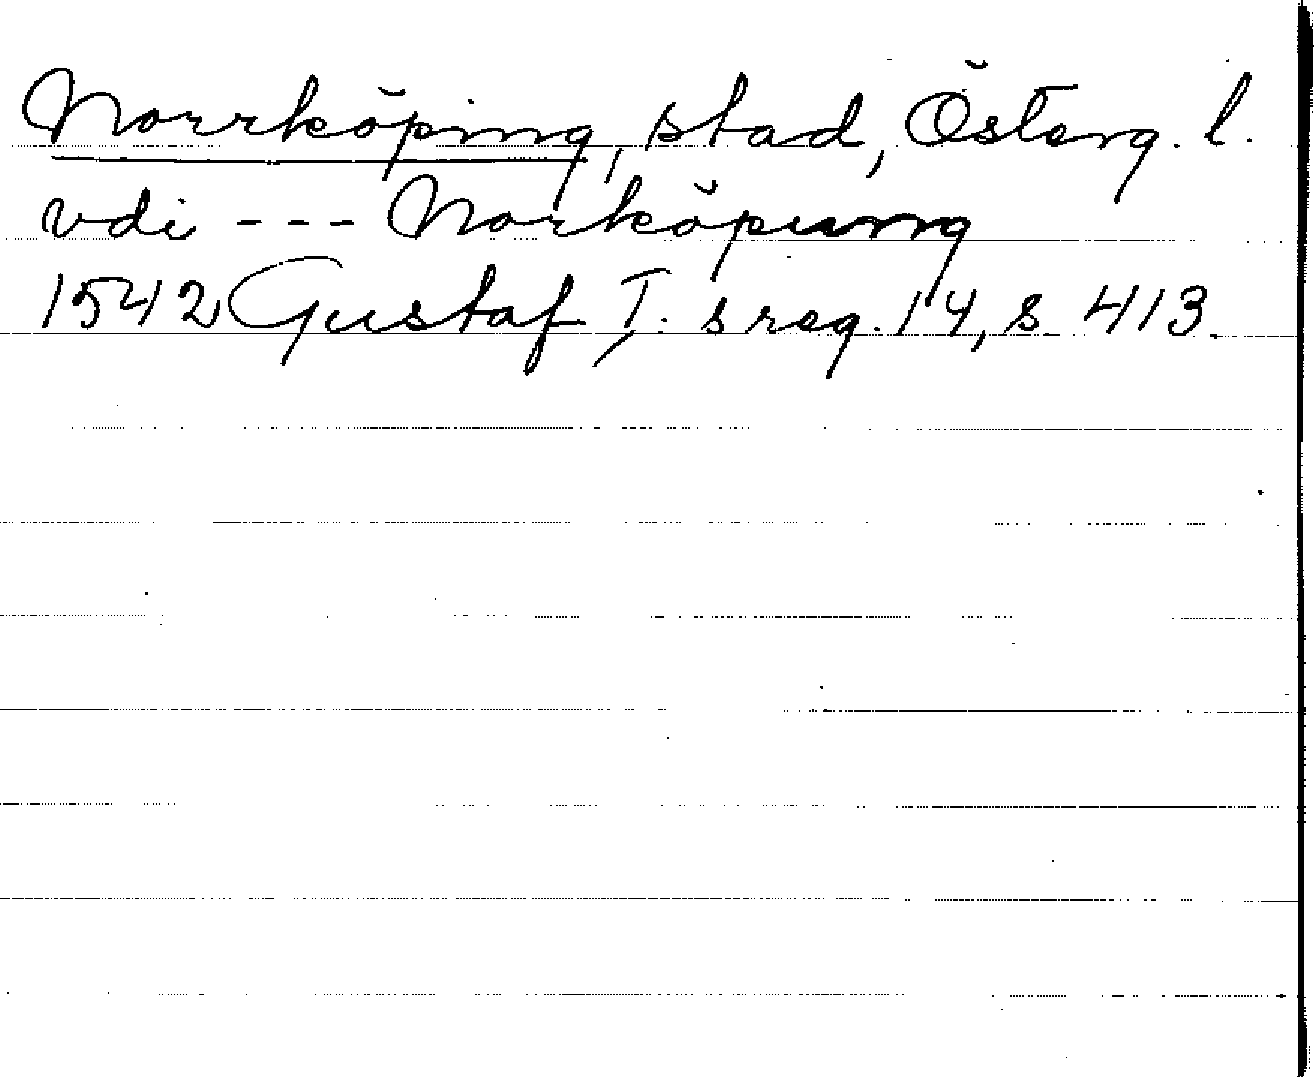 Norrköping, stad, Österg. l.
vdi --- Norköpung
1542 Gustaf I: s reg. 14, s 413.